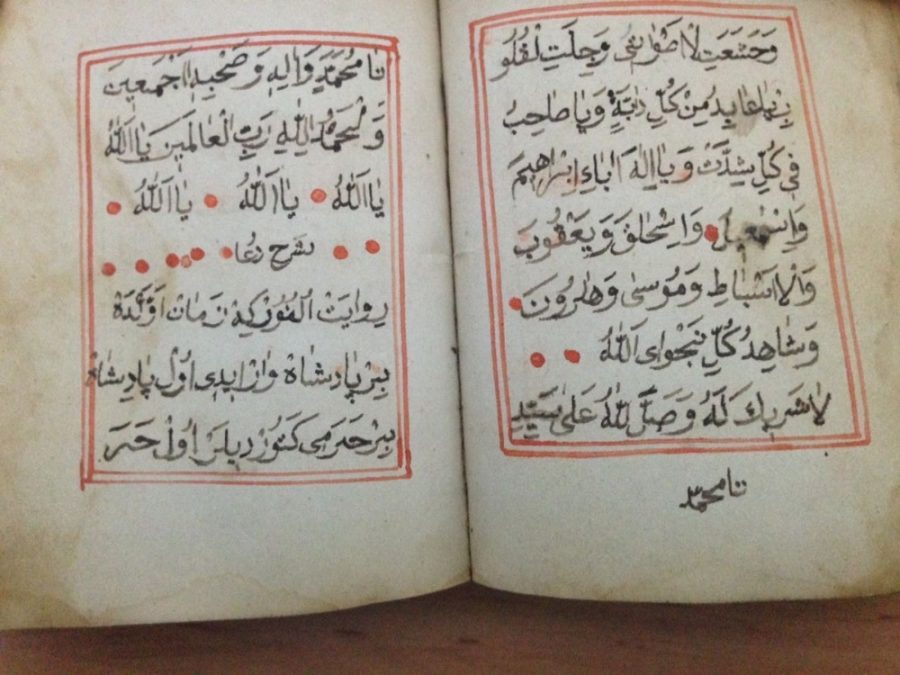 وَحَشَعَتِ لْاَصْوَاتُ وَجِلَتِ لْقُلُو
مِنْ كُلِّ دَابَّةٍ وَيَا صَاحِبُ
فِى كُلِّ شِدَّتْ وَيَا اِلٰهَ اٰبَاءِ اِبْرَاهِيمَ
وَاِسْمٰعِيلَ وَاِسْحَاقَ وَيَعْقُوبَ
وَالْاَسْبَاطِ وَمُوسٰى وَهَارُونَ
وَشَاهِدُ كُلِّ نَجْوَاى اَللّٰهُ
لَا شَرِيكَ لَهُ وَصَلَّ للّٰهُ عَلٰى سَيِّدِ
نا محمد
نَا مُحَمَّدٍ وَاٰلِهِ وَصَحْبِهِ اَجْمَعِينَ
وَلْحَمْدُ لِلّٰهِ رَبِّ الْعَالَمِينَ يَا اَللّٰهُ
يَا اَللّٰهُ يَا اَللّٰهُ يَا اَللّٰهُ
شرح دعا
رِوَايَتْ الُنُورْ كِه زَمَانْ اَوَّلْدَه
بِرْ پَادِشَاهْ وَارْ اِيدِى اُولْ پَادِشَاهْ
بِرْ حَرَمِى كَتُورْدِيلَرْ اُولْ حَرَ